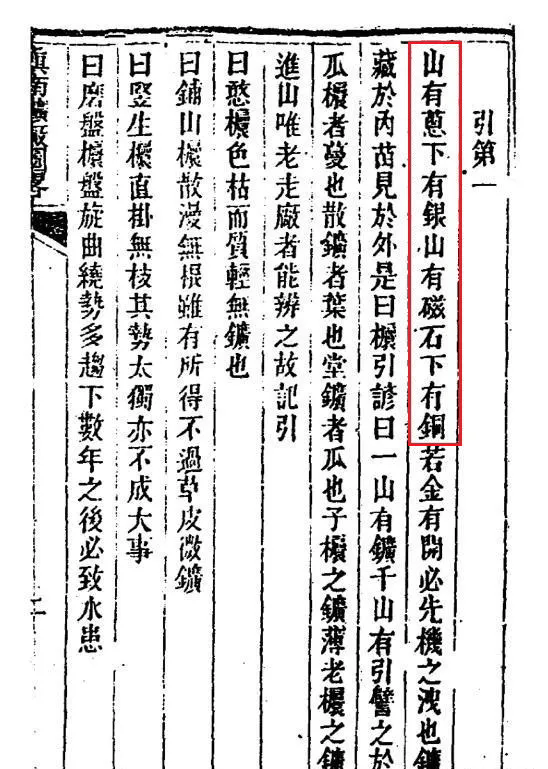 引第一
山有蔥下有銀山有磁石下有銅若金有開必先機之洩也鑛
藏於內苗見於外是曰櫎引諺曰一山有鑛千山有引譬之於
瓜櫎者蔓也散鑛者葉也堂鑛者瓜也子櫎之鑛薄老櫎之鑛
進山唯老走廠者能辨之故記引
曰憨櫎色枯而質輕無鑛也
曰鋪山櫎散漫無根雖有所得不過草皮微鑛
曰竪生櫎直掛無枝其勢太獨亦不成大事
曰磨盤櫎盤旋曲繞勢多趨下數年之後必致水患
滇南鑛廠圖畧